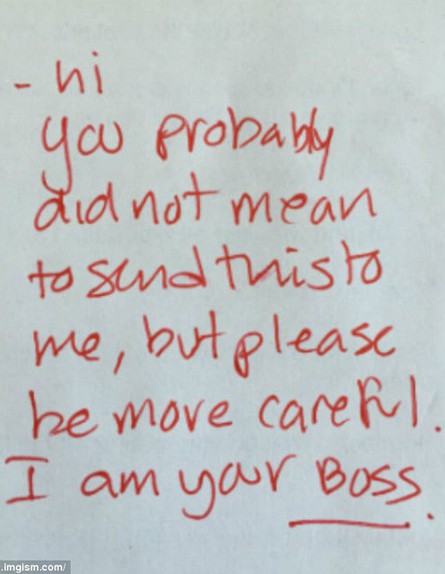 - hi
you probably
did not mean
to send this to
me, but please
be more careful.
I am your Boss.
.imgism.com/